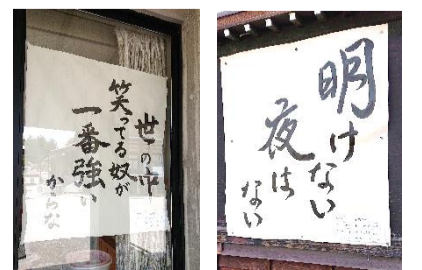 世の中
笑ってる奴が
一番強い
からな
明けない
夜は
ない